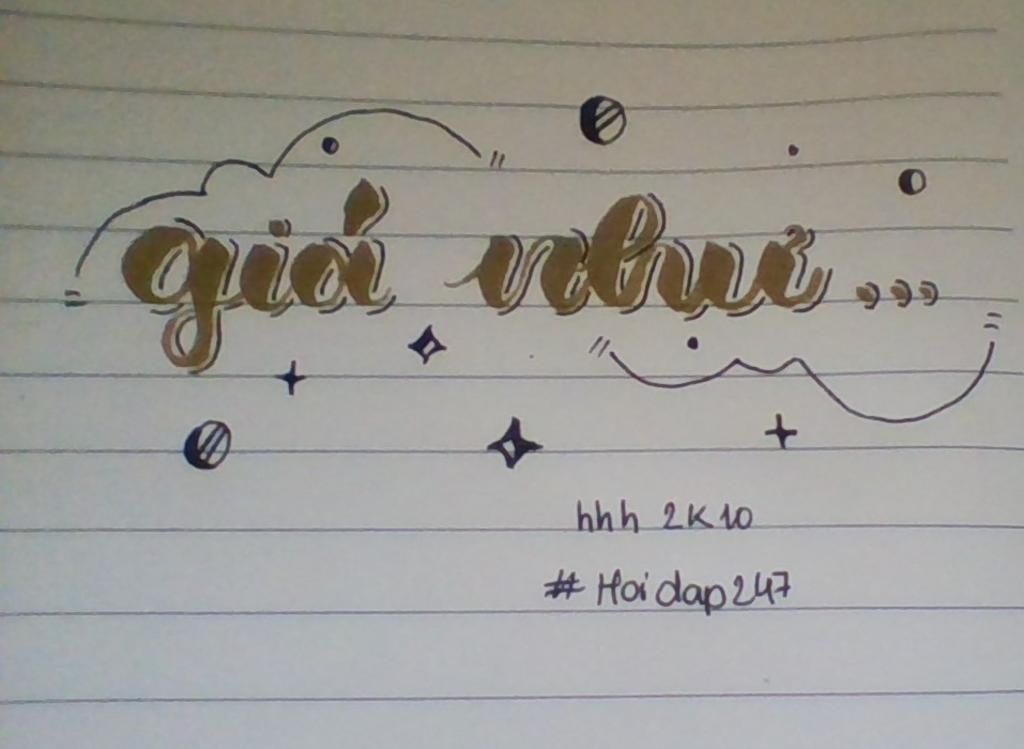 giá như...
hhh 2K10
# Hoidap247